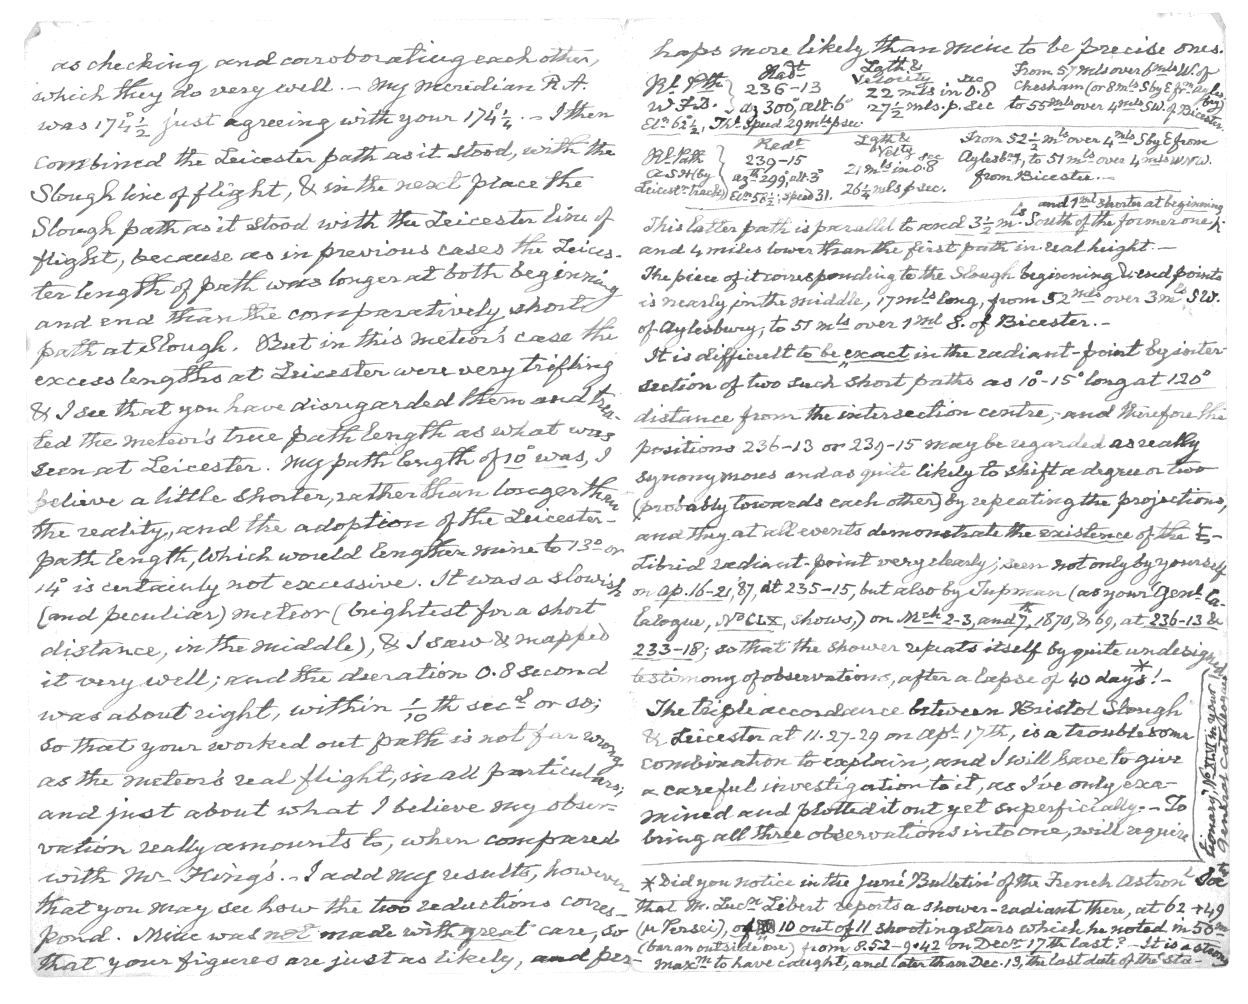 as checking and corroborating each other,
which they do very well. – My meridian R.A.
was 174°½ just agreeing with your 174°¼. – I then
combined the Leicester path as it stood, with the
Slough line of flight, & in the next place the
Slough path as it stood with the Leicester line of
flight, because as in previous cases the Leices-
ter length of path was longer at both beginning
and end than the comparatively short
path at Slough. But in this meteor's case the
excess lengths at Leicester were very trifling
& I see that you have disregarded them and trea-
ted the meteor's true path length as what was
seen at Leicester. My path length of 10° was, I
believe a little shorter, rather than longer than
the reality, and the adoption of the Leicester-
path length, which would lengthen mine to 13° or
14° is certainly not excessive. It was a slowish
(and peculiar) meteor (brightest for a short
distance, in the middle), & I saw & mapped
it very well; and the duration 0.8 second
was about right, within 1/10 th secd or so;
so that your worked out path is not far wrong
as the meteor's real flight, in all particulars;
and just about what I believe my obser-
vation really amounts to, when compared
with Mr King's. – I add my results, however
that you may see how the two reductions corres-
pond. Mine was not made with great care, so
that your figures are just as likely, and per-
haps more likely than mine to be precise ones.
Rl. Pth W.F.D. Radt 236–13 az 300°, alt. 6° Lgth & Velocity 22 mls in 0.8 sec 27½ mls. p. sec From 57 mls over 6 mls W. of
Chesham (or 8 mls S by E fm Ayles-
bury) to 55 mls over 4 mls SW. of Bicester.
Eln 62°½, Thl. Speed 29 mls p sec
Rl. Path A.S.H (by Leicestr track) Radt. 239–15 azth 299°, alt. 3° Eln 58½; speed 31. Lgth & Velty 21 mls in 0.8 sec 26¼ mls p sec. From 52½ mls over 4 mls S by E from
Aylesbury, to 51 mls over 4 mls WNW.
from Bicester. –
and 1 ml shorter at beginning
This latter path is parallel to and 3½ mls South of the former one,
and 4 miles lower than the first path in real height. –
The piece of it corresponding to the Slough beginning & end points
is nearly in the middle, 17 mls long, from 52 mls over 3 mls SW.
of Aylesbury, to 51 mls over 1 ml S. of Bicester. –
It is difficult to be exact in the radiant-point by inter-
section of two such short paths as 10°–15° long at 120°
distance from the intersection centre, and therefore the
positions 236–13 or 239–15 may be regarded as really
synonymous and as quite likely to shift a degree or two
(probably towards each other) by repeating the projections,
and they at all events demonstrate the existence of the ξ–
Librid radiant-point very clearly; seen not only by yourself
on ap. 16–21, '87, at 235–15, but also by Tupman (as your Genl. Ca-
talogue, No CLX, shows,) on Mch. 2–3, and 7, 1870, & 69, at 236–13 &
233–18; so that the shower repeats itself by quite undesigned
testimony of observations, after a lapse of 40 days! * –
The triple accordance between Bristol Slough
& Leicester at 11.27–29 on Apl. 17th, is a troublesome
combination to explain, and I will have to give
a careful investigation to it, as I've only exa-
mined and plotted it out yet superficially. – To
bring all three observations into one, will require
* Did you notice in the june 'Bulletin' of the French Astronl Socty
that M. Lucn. Libert reports a shower-radiant there, at 62 +49
(μ Persei), of 10 out of 11 shooting stars which he noted in 50m
(bar an outside one) from 8.52–9.42 on Decr. 17th last? – It is a strong
maxm. to have caught, and later than Dec. 13, the last date of the 'sta-
tionary', No XLVI in your
General Catalogue.